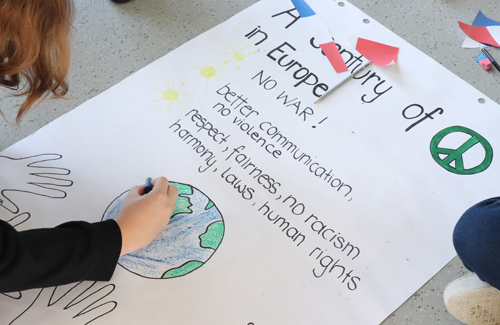 A Century of
in Europe
NO WAR!
better communication,
no violence
respect, fairness, no racism
harmony, laws, human rights